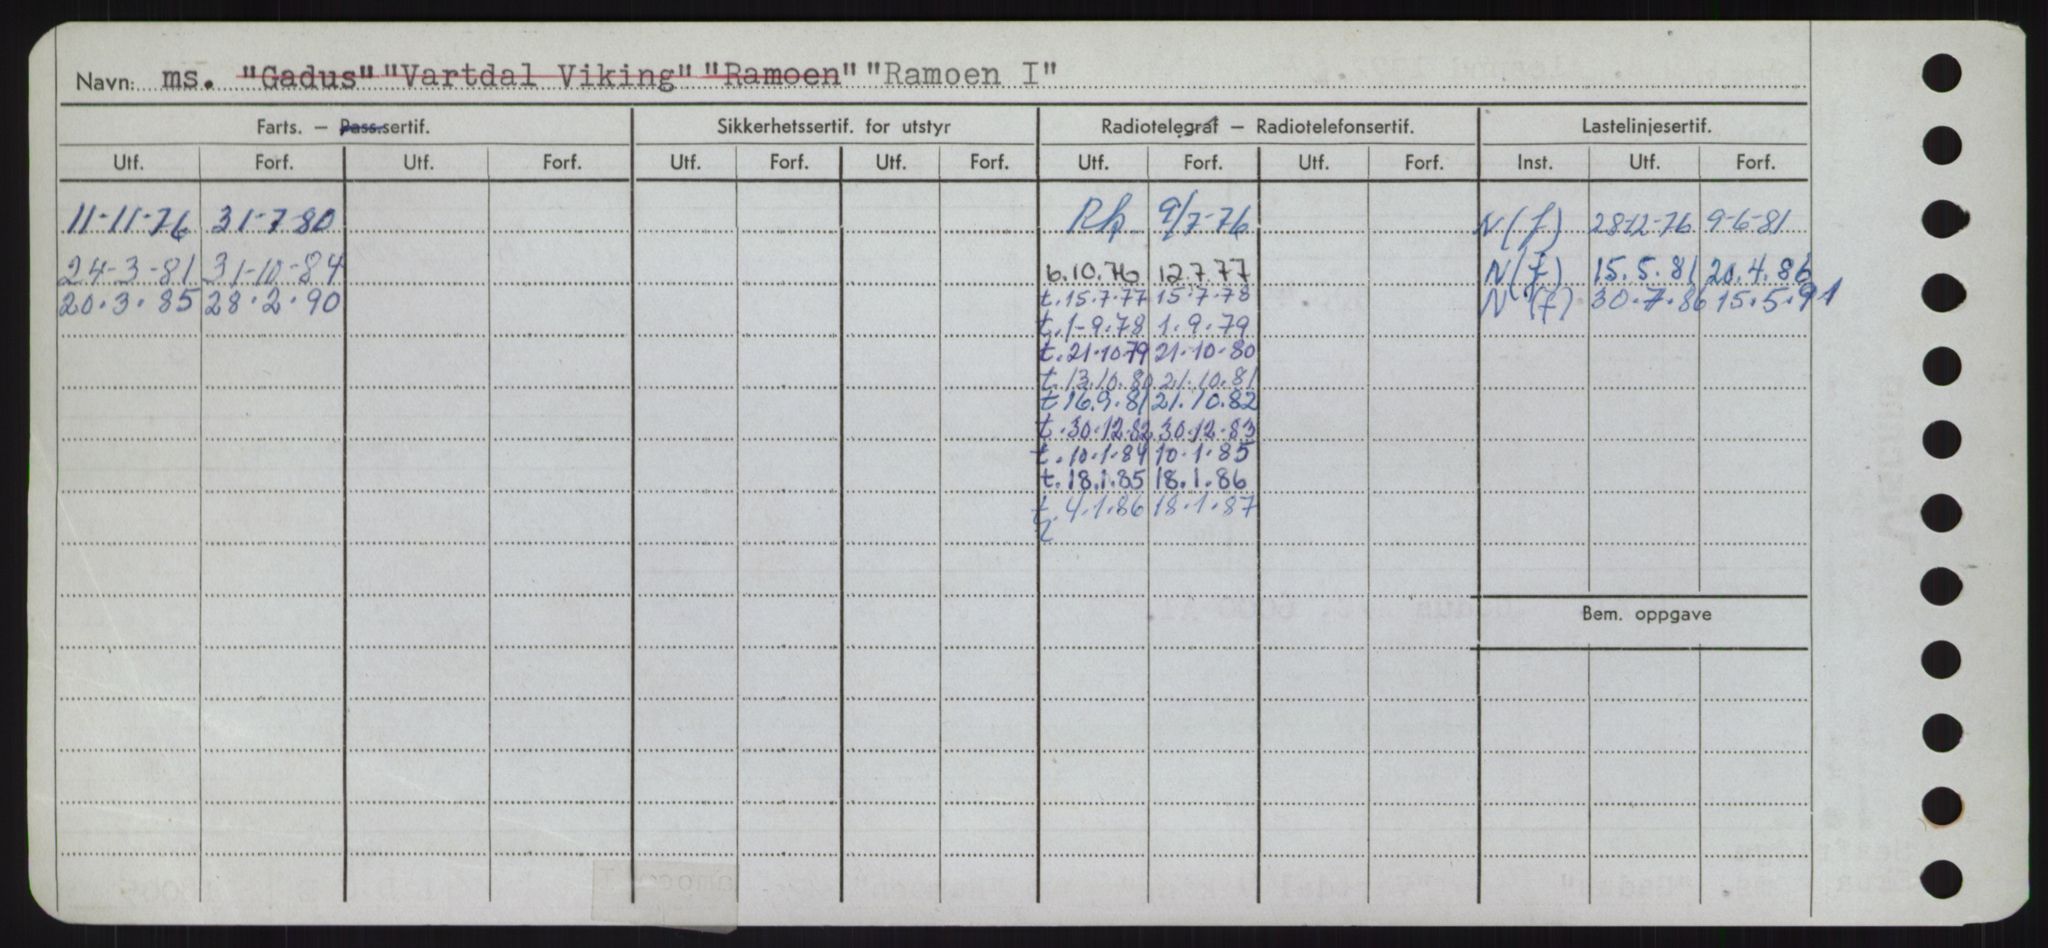 Navn: ms. "Gadus" "Vartdal Viking" "Ramoen" "Ramoen I"
Farts. – Pass.sertif. Sikkerhetssertif. for utstyr Radiotelegraf – Radiotelefonsertif. Lastelinjesertif.
Utf. Forf. Utf. Forf. Utf. Forf. Utf. Forf. Utf. Forf. Utf. Forf. Inst. Utf. Forf.
11-11-76 31-7-80 9/7-76 N(f) 28-12-76 9-6-81
24-3-81 31-10-84 6.10.76 12.7.77 N(f) 15.5.81 20.4.86
20.3.85 28.2.90 t.15.7.77 15.7.78 N(f) 30.7.86 15.5.91
t.1-9.78 1.9.79
t.21.10.79 21.10.80
t.13.10.80 21.10.81
t.16.9.81 21.10.82
t.30.12.82 30.12.83
t.10.1.84 10.1.85
t.18.1.85 18.1.86
t.4.1.86 18.1.87
Bem. oppgave